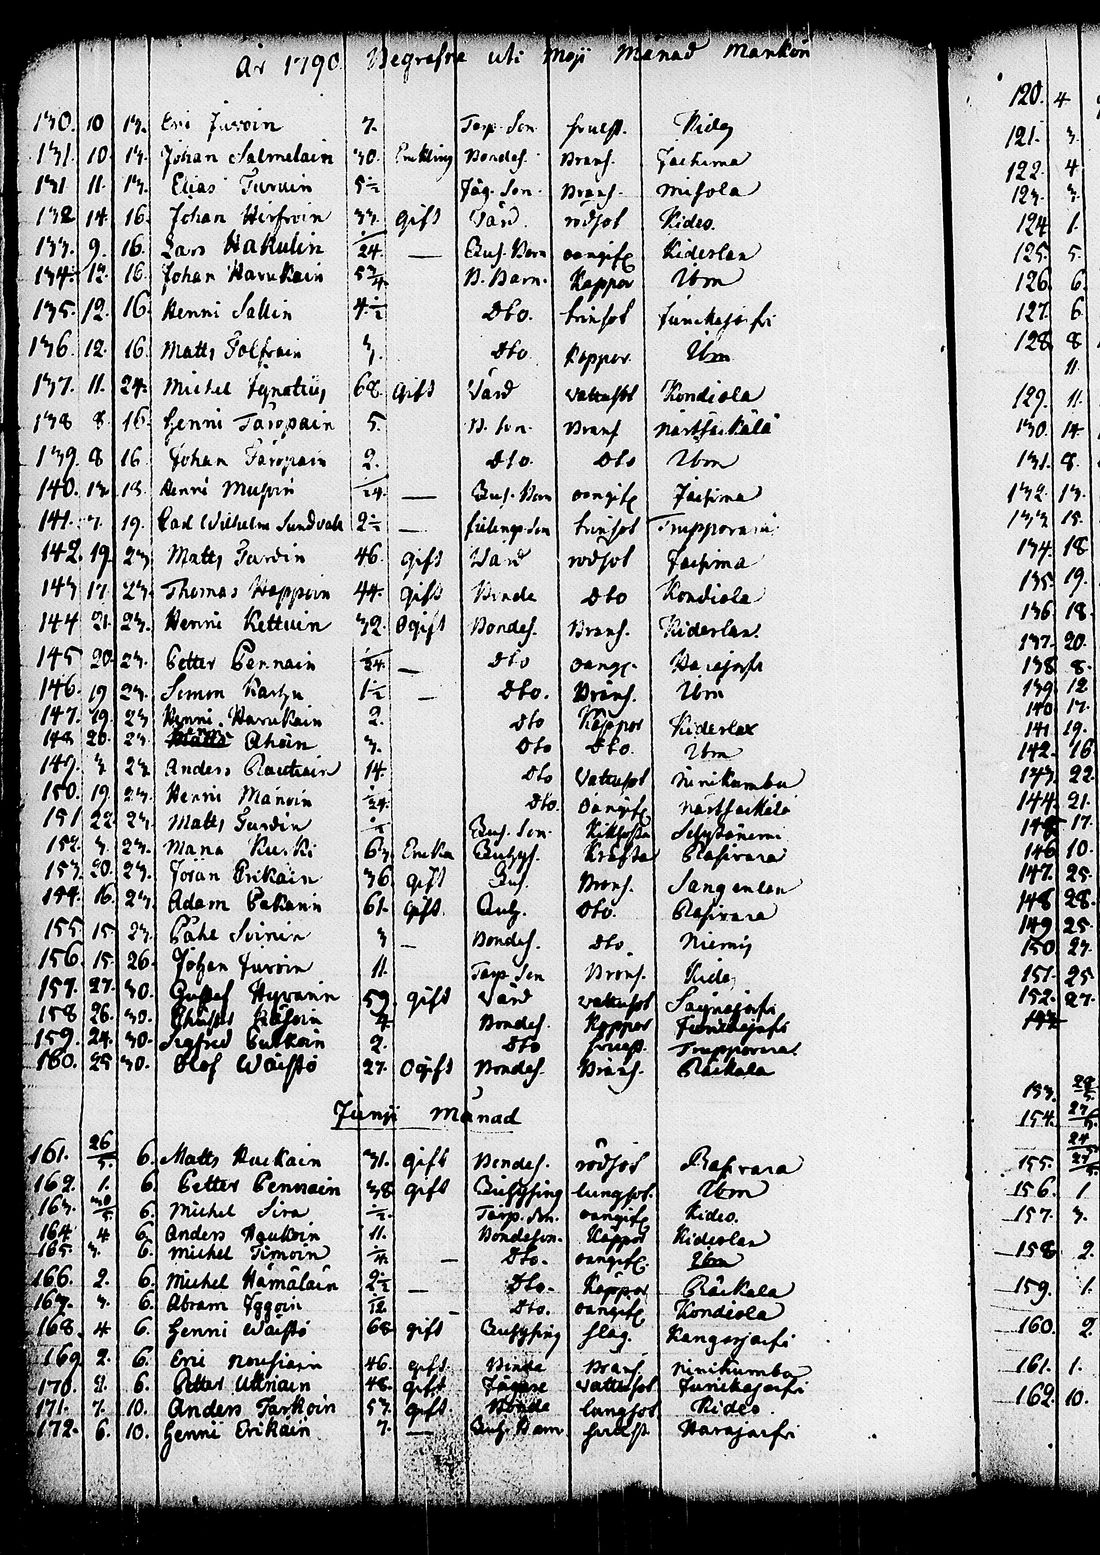 År 1790 Begrafne uti Maji Månad Mankön
130. 10 13. Eric Juvoin 7. Torp. Son. Kides
131. 10. 13. Johan Salmelain 30. Enkling Bondes. Brans. Jachima
131 11. 13. Elias Turuin 5½ Jäg. Son. Brans. Misola
132 14 16. Johan Hirfvoin 33. gift Värd rödsot Kides.
133. 9. 16. Lars Hakulin 1/24. — Inh. Barn oangif Kideslax
134. 12. 16. Johan Havukain 5¾ B. Barn. Koppor Ibm
135. 12. 16. Henric Sallin 4½ Dto. trinsot Junckajärfvi
136. 12. 16 Matts Tolfvain 3. Dto Koppor. Ibm
137. 11. 24. Michel Ignatius 68. gift Värd vattusot Kondiola
138 8. 16. Henric Taropain 5. B. Son. Brans Närsäckälä
139. 8 16 Johan Taropain 2. Dto. Dto Ibm
140. 13. 18. Henric Mustoin 1/24. — Inh. Barn oangif Jachima
141. 7. 19. Carl Wilhelm Sundvall 2½ — Son trinsot Trupporanni
142. 19. 23. Matts Turdin 46. gift Värd rödsot Jachima
143 17. 23. Thomas Happoin 44. gift Bonde Dto Kondiola
144 21. 23. Henric Kettuin 32. Ogift Bondes. Brans. Kideslax.
145 20. 23. Petter Pennain 1/24. — Dto oangif. Havajärfvi
146. 19 23. Simon Karhu 1½ — Dto. Brans. Ibm
147. 19. 23 Henric Havukain 2. Dto Koppor Kideslax
148 20. 23 Ahoin 3. Dto Dto. Ibm
149. 3. 23. Anders Rautiain 14. Dto Vattusot Ninikumbu
150. 19. 23. Henric Manoin 1/24. Dto. Oangif Närsäckälä
151 22. 23. Matts Turdin ½ Inh. Son.
152. 3. 23. Maria Kurki 63 Encka Inhys. Kräfta Rasivara
153. 20. 23. Johan Erikain 36 gift Inh. Brans. Sangenlax
154. 16. 23. Adam Pakarin 61. gift. Inh. Dto. Rasivara
155 15 23. Påhl Soinin 3 — Bondes. Dto. Niemis
156. 15. 26. Johan Juvoin 11. Torp. Son Brans. Kides
157. 27. 30. Gustaf Hyvarin 59. gift Värd vattusot Sarjnajärfvi
158 26. 30. Räsoin 4. Bondes. Koppor Junckajärfvi
159. 24. 30. Sigfred Puckoin 2. Dto Trupporanni
160. 25 30. Olof Waisto 27. Ogift Bondes. Brans. Räckälä
Junji Månad
161. 26/5. 6. Matts Huckain 31. gift Bondes. rödsot Rasivara
162. 1. 6. Petter Pennain 38 gift Inhysing lungsot. Ibm
163. 30/5 6. Michel Sira ½ Torp. Son. oangif Kides.
164. 4 6. Anders Haukoin 11. Bondeson. Koppor Kideslax
165. 3. 6. Michel Timoin ¼ — Dto. oangif. Ibm
166. 2. 6. Michel Hämäläin 2½ — Dto. Koppor Räckälä
167. 3. 6. Abram Iggoin 1/12. Dto. oangif Kondiola
168. 4 6. Henric Waistö 68. gift Inhysing slag. Kangasjärfvi
169. 2. 6. Eric Nousiain 46. gift. Bonde Brans. Ninikumbu
170. 2. 6. Petter Uttriain 48. gift Jägare vattusot Junickajärfvi
171. 7. 10. Anders Tarkoin 57. gift. Bonde lungsot Kides
172. 6. 10. Henric Erikain 7. — Inh. Barn Havajärfvi
120. 4
121. 3.
122. 4.
123. 3.
124 1.
125. 5.
126. 6.
127. 6
128 8
11.
129. 11.
130. 14.
131. 8.
132. 13.
133 15.
134. 18
135 19.
136 18.
137. 20.
138 8.
139. 12
140 17.
141 19.
142. 16
143. 22.
144. 21.
145 17.
146 10.
147. 25.
148 28.
149. 25.
150. 27.
151. 25
152. 27.
153. 29/5.
154. 27/5.
24/5.
155. 27/5.
156. 1
157. 3.
158 2.
159. 1.
160. 2.
161. 1.
162. 10.